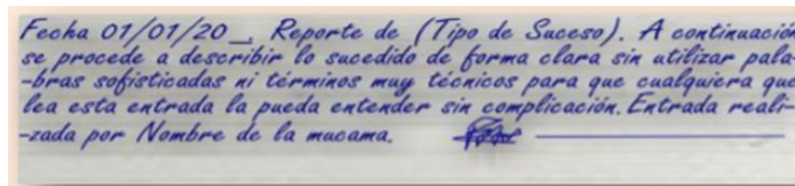 Fecha 01/01/20_. Reporte de (Tipo de Suceso). A continuación
se procede a describir lo sucedido de forma clara sin utilizar pala-
-bras sofisticadas ni términos muy técnicos para que cualquiera que
lea esta entrada la pueda entender sin complicación. Entrada reali-
-zada por Nombre de la mucama.